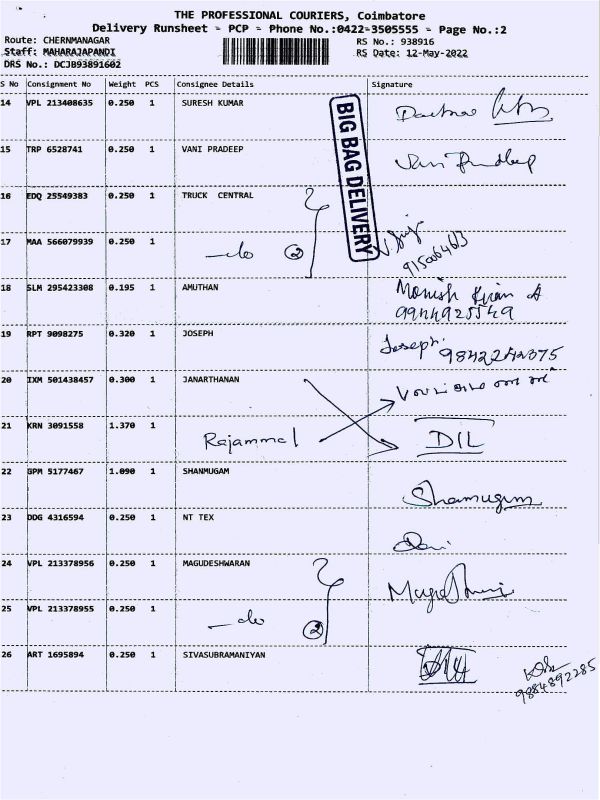 THE PROFESSIONAL COURIERS, Coimbatore
Delivery Runsheet - PCP - Phone No.:0422-3505555 - Page No.:2
Route: CHERNMANAGAR
Staff: MAHARAJAPANDI
DRS No.: DCJB93891602
RS No.: 938916
RS Date: 12-May-2022
S No Consignment No Weight PCS Consignee Details Signature
14 VPL 213408635 0.250 1 SURESH KUMAR
BIG BAG DELIVERY
15 TRP 6528741 0.250 1 VANI PRADEEP Vani Pradeep
16 EDQ 25549383 0.250 1 TRUCK CENTRAL
17 MAA 566079939 0.250 1 —do 2
18 SLM 295423308 0.195 1 AMUTHAN Monish Kiran A
9944925549
19 RPT 9098275 0.320 1 JOSEPH Joseph. 9842242375
20 IXM 501438457 0.300 1 JANARTHANAN
21 KRN 3091558 1.370 1 Rajammal DIL
22 GPM 5177467 1.090 1 SHANMUGAM Shamugum
23 DDG 4316594 0.250 1 NT TEX
24 VPL 213378956 0.250 1 MAGUDESHWARAN
25 VPL 213378955 0.250 1 —do 2
26 ART 1695894 0.250 1 SIVASUBRAMANIYAN
9884892285